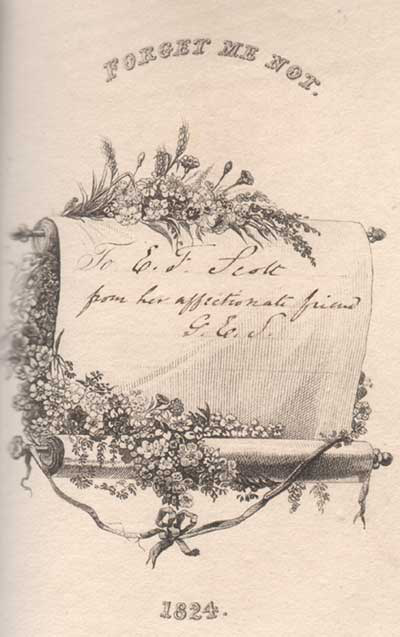 FORGET ME NOT.
To E. F. Scott
from her affectionate friend
G. E. S.
1824.